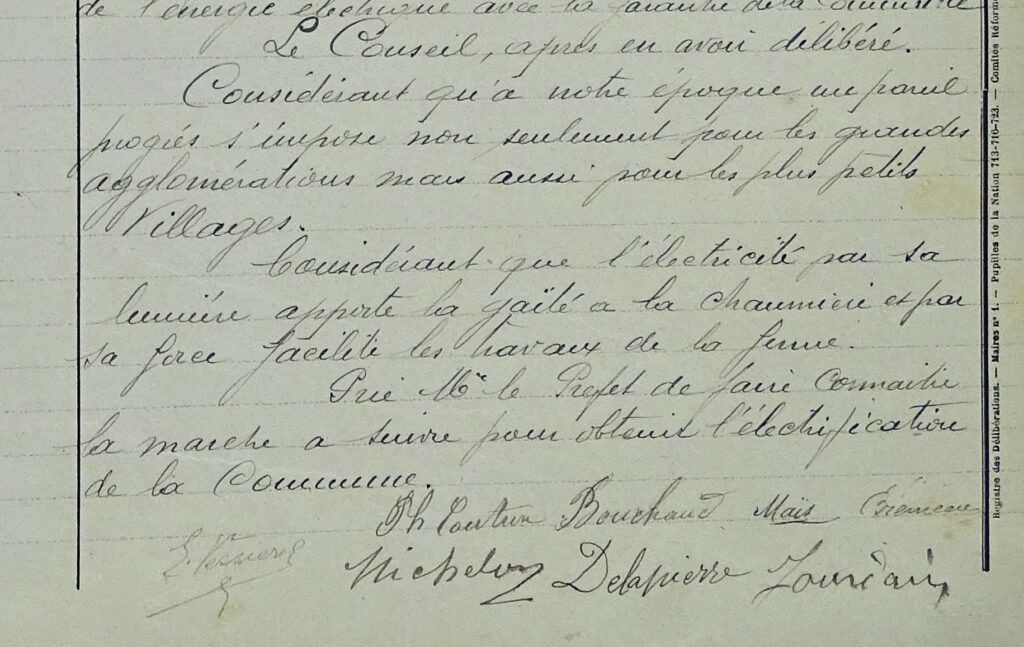 de l'énergie électrique avec la garantie de la Commune
Le Conseil, après en avoir délibéré.
Considérant qu'à notre époque un pareil
progrès s'impose non seulement pour les grandes
agglomérations mais aussi pour les plus petits
Villages.
Considérant que l'électricité par sa
lumière apporte la gaîté a la chaumière et par
sa force facilite les travaux de la ferme.
Prie Mr le Préfet de faire Connaitre
la marche a suivre pour obtenir l'électrification
de la Commune.
Ph Bouchaud Maïs
Michelon Delapierre Jourdain
Registre des Délibérations. — Maires n° 1. — Pupilles de la Nation 713-716-723. — Comités Réform